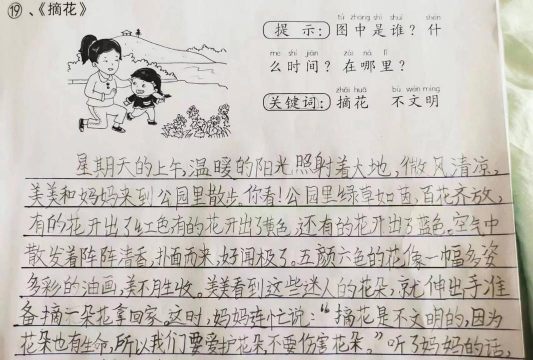 ⑲、《摘花》
tú zhōng shì shuí shén
提示: 图中是谁？什
me shí jiān zài nǎ lǐ
么时间？在哪里？
zhāi huā bù wén míng
关键词: 摘花 不文明
星期天的上午,温暖的阳光照射着大地,微风清凉,
美美和妈妈来到公园里散步。你看!公园里绿草如茵,百花齐放,
有的花开出了红色有的花开出了黄色,还有的花开出了蓝色。空气中
散发着阵阵清香,扑面而来,好闻极了。五颜六色的花像一幅多姿
多彩的油画,美不胜收。美美看到这些迷人的花朵,就伸出手准
备摘一朵花拿回家。这时,妈妈连忙说:“摘花是不文明的,因为
花朵也有生命,所以我们要爱护花朵,不要伤害花朵。”听了妈妈的话,